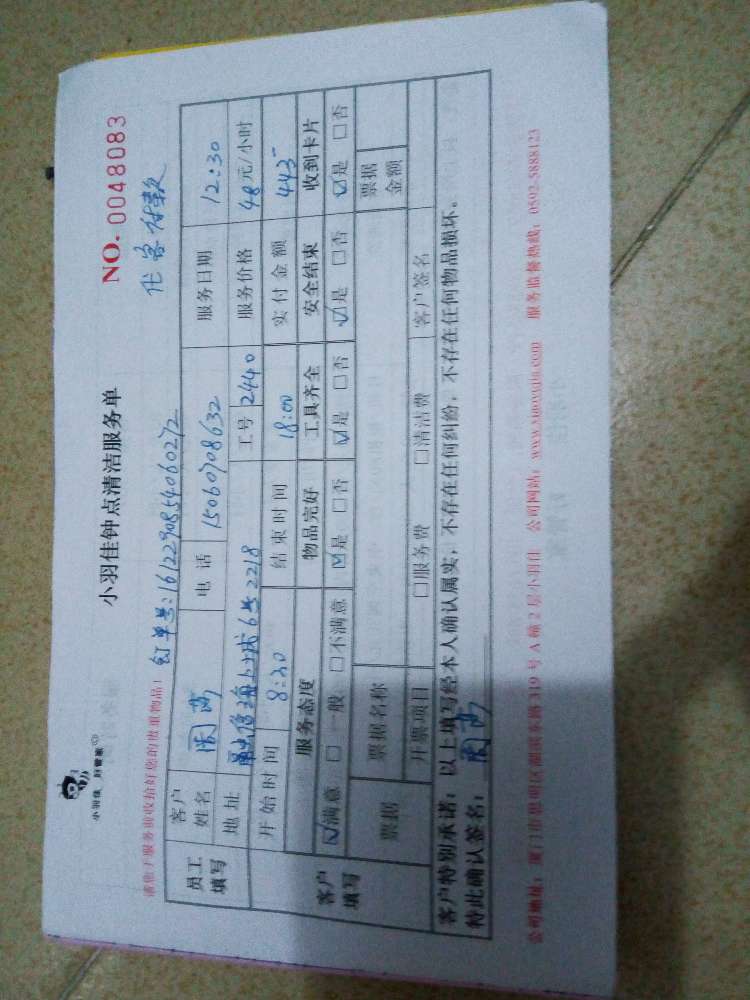 小羽佳 好管家
小羽佳钟点清洁服务单
NO. 0048083
请你于服务前收拾好您的贵重物品！
订单号:16122908540602272
代客付款
员工填写
客户姓名
电话 15060708632
服务日期 12:30
地址 海上城6号2218
工号 2440
服务价格 48元/小时
开始时间 8:30
结束时间 18:00
实付金额 443-
客户填写
服务态度 物品完好 工具齐全 安全结束 收到卡片
☑满意 □一般 □不满意 ☑是 □否 ☑是 □否 ☑是 □否 ☑是 □否
票据 票据名称 票据金额
开票项目 □服务费 □清洁费 客户签名
客户特别承诺：以上填写经本人确认属实，不存在任何纠纷，不存在任何物品损坏。
特此确认签名：
公司地址：厦门市思明区湖滨东路319号A幢2层小羽佳 公司网站：www.xiaoyujia.com 服务监督热线：0592-5888123